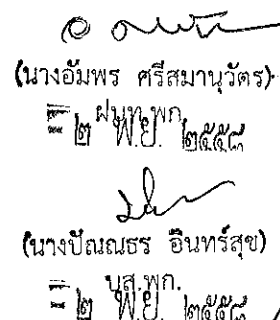 (นางอัมพร ศรีสมานุวัตร)
ฝนท.พก.
๒ พ.ย. ๒๕๕๘
(นางปัณณธร อินทร์สุข)
นส.พก.
๒ พ.ย. ๒๕๕๘